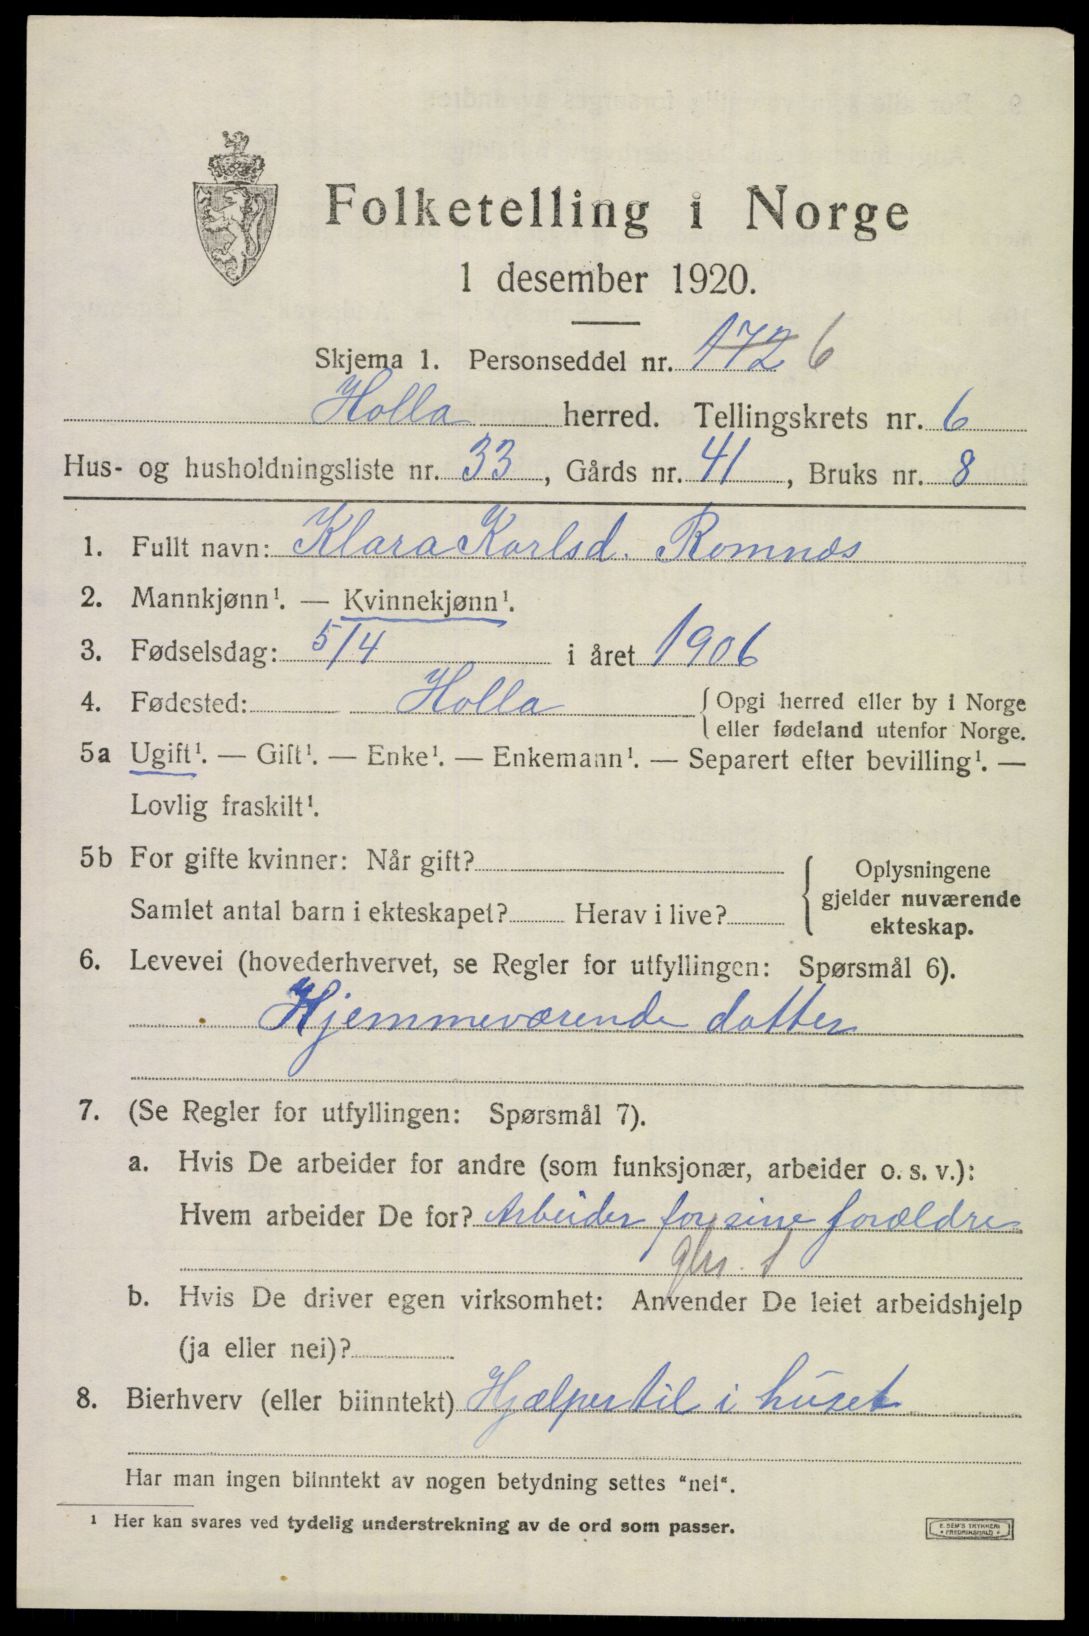 Folketelling i Norge
1 desember 1920.
Skjema 1. Personseddel nr. 172 6
Holla herred. Tellingskrets nr. 6
Hus- og husholdningsliste nr. 33, Gårds nr. 41, Bruks nr. 8
1. Fullt navn: Klara Karlsd. Romnæs
2. Mannkjønn¹. — Kvinnekjønn¹.
3. Fødselsdag: 5/4 i året 1906
4. Fødested: Holla { Opgi herred eller by i Norge
eller fødeland utenfor Norge.
5a Ugift¹. — Gift¹. — Enke¹. — Enkemann¹. — Separert efter bevilling¹. —
Lovlig fraskilt¹.
5b For gifte kvinner: Når gift?
Samlet antal barn i ekteskapet? Herav i live?
{ Oplysningene
gjelder nuværende
ekteskap.
6. Levevei (hovederhvervet, se Regler for utfyllingen: Spørsmål 6).
Hjemmeværende datter
7. (Se Regler for utfyllingen: Spørsmål 7).
a. Hvis De arbeider for andre (som funksjonær, arbeider o. s. v.):
Hvem arbeider De for? Arbeider for sine forældre
b. Hvis De driver egen virksomhet: Anvender De leiet arbeidshjelp
(ja eller nei)?
8. Bierhverv (eller biinntekt) Hjælper til i huset
Har man ingen biinntekt av nogen betydning settes "nei".
¹ Her kan svares ved tydelig understrekning av de ord som passer.
E. SEM'S TRYKKERI
FREDRIKSHALD